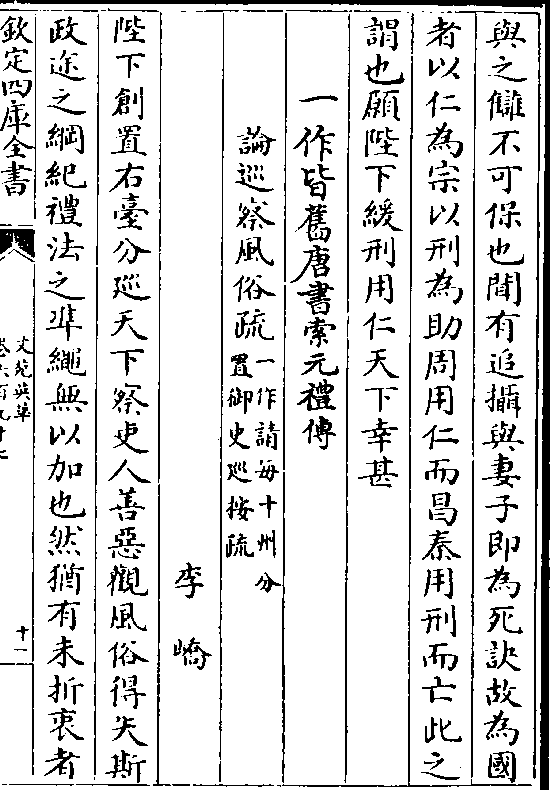 與之讎不可保也聞有追攝與妻子即為死訣故為國
者以仁為宗以刑為助周用仁而昌秦用刑而亡此之
謂也願陛下緩刑用仁天下幸甚
一作皆舊唐書索元禮傳
論巡察風俗疏一作請每十州分
置御史巡按疏
李嶠
陛下創置右臺分巡天下察吏人善惡觀風俗得失斯
政途之綱紀禮法之凖繩無以加也然猶有未折衷者
欽定四庫全書
文苑英華
十一